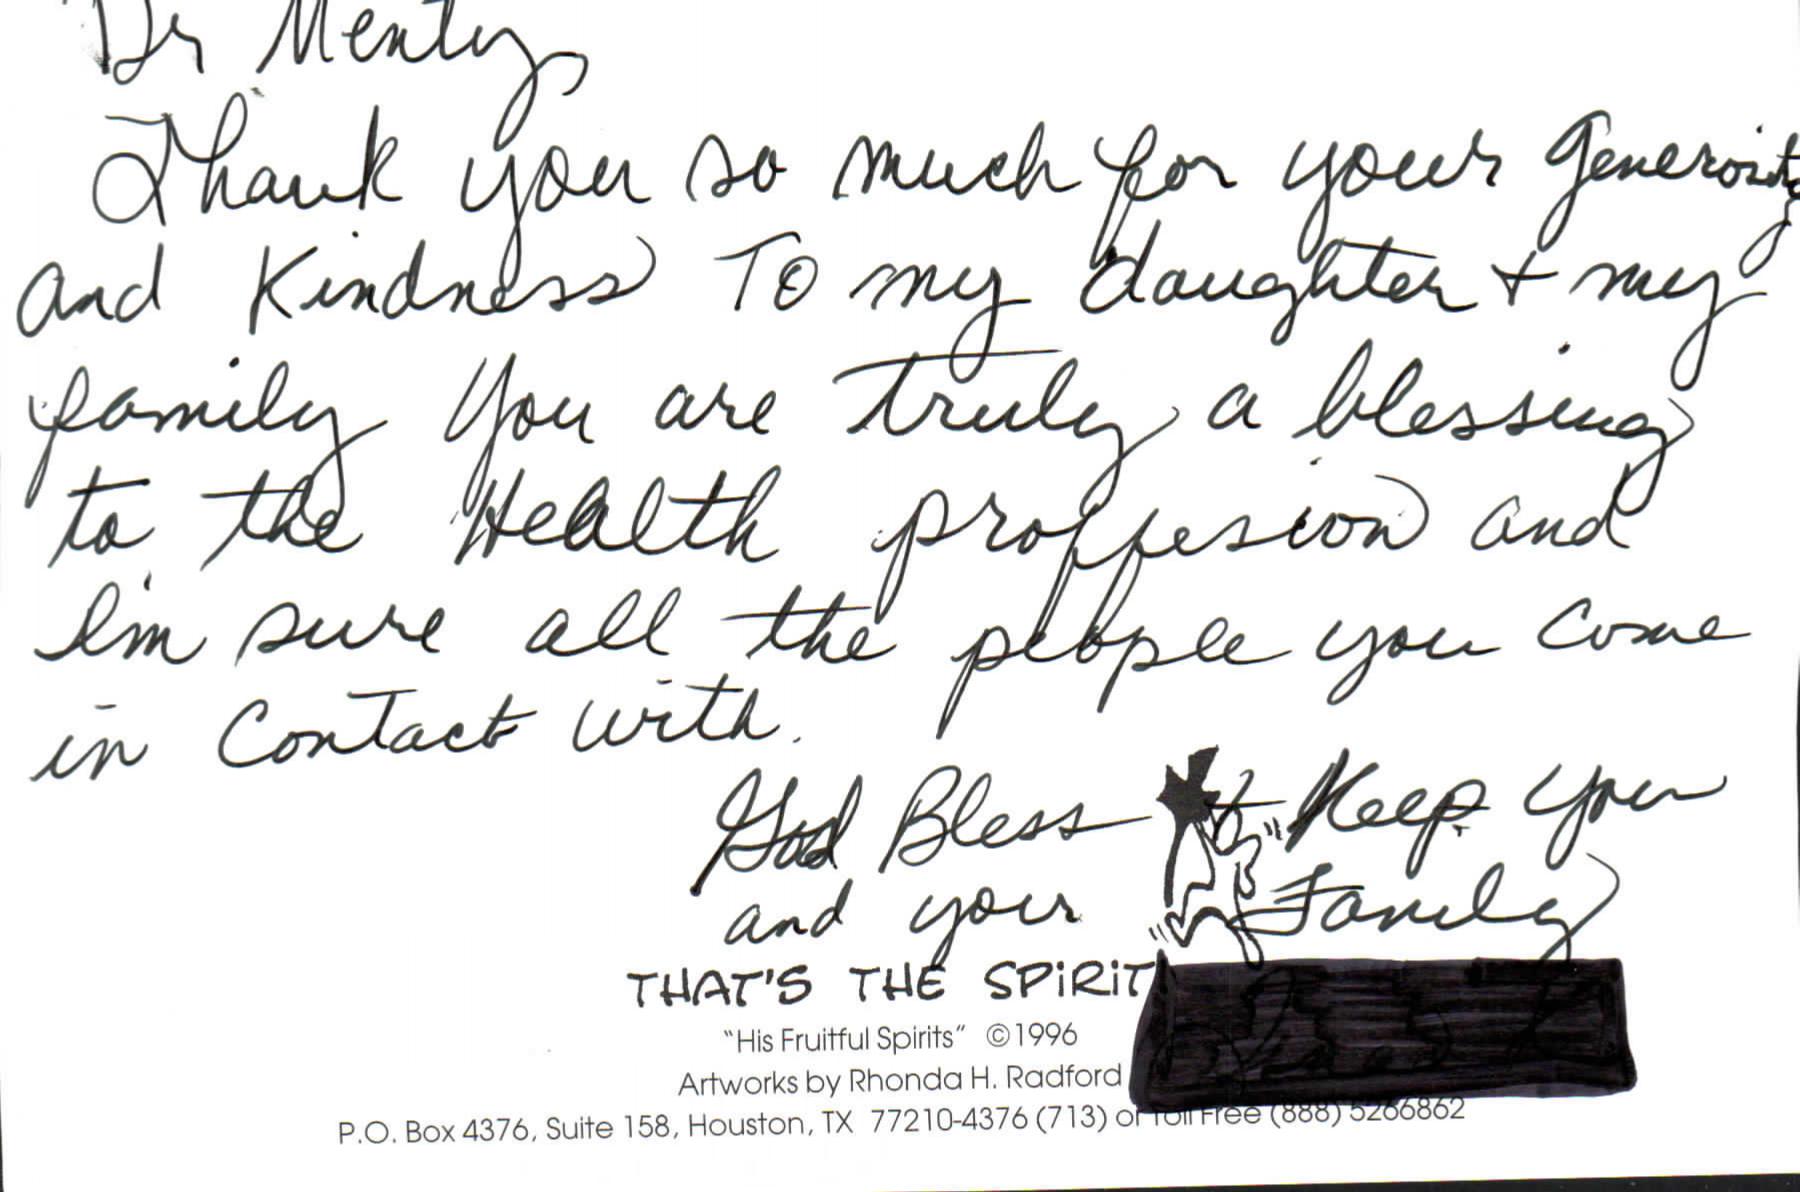 Dr Menty
Thank you so much for your generosity
and Kindness To my daughter + my
family You are truly a blessing
to the Health proffesion and
I'm sure all the people you come
in Contact with.
God Bless + Keep you
and your Family
THAT'S THE SPiRiT!
"His Fruitful Spirits" ©1996
Artworks by Rhonda H. Radford
P.O. Box 4376, Suite 158, Houston, TX 77210-4376 (713) or Toll Free (888) 5266862